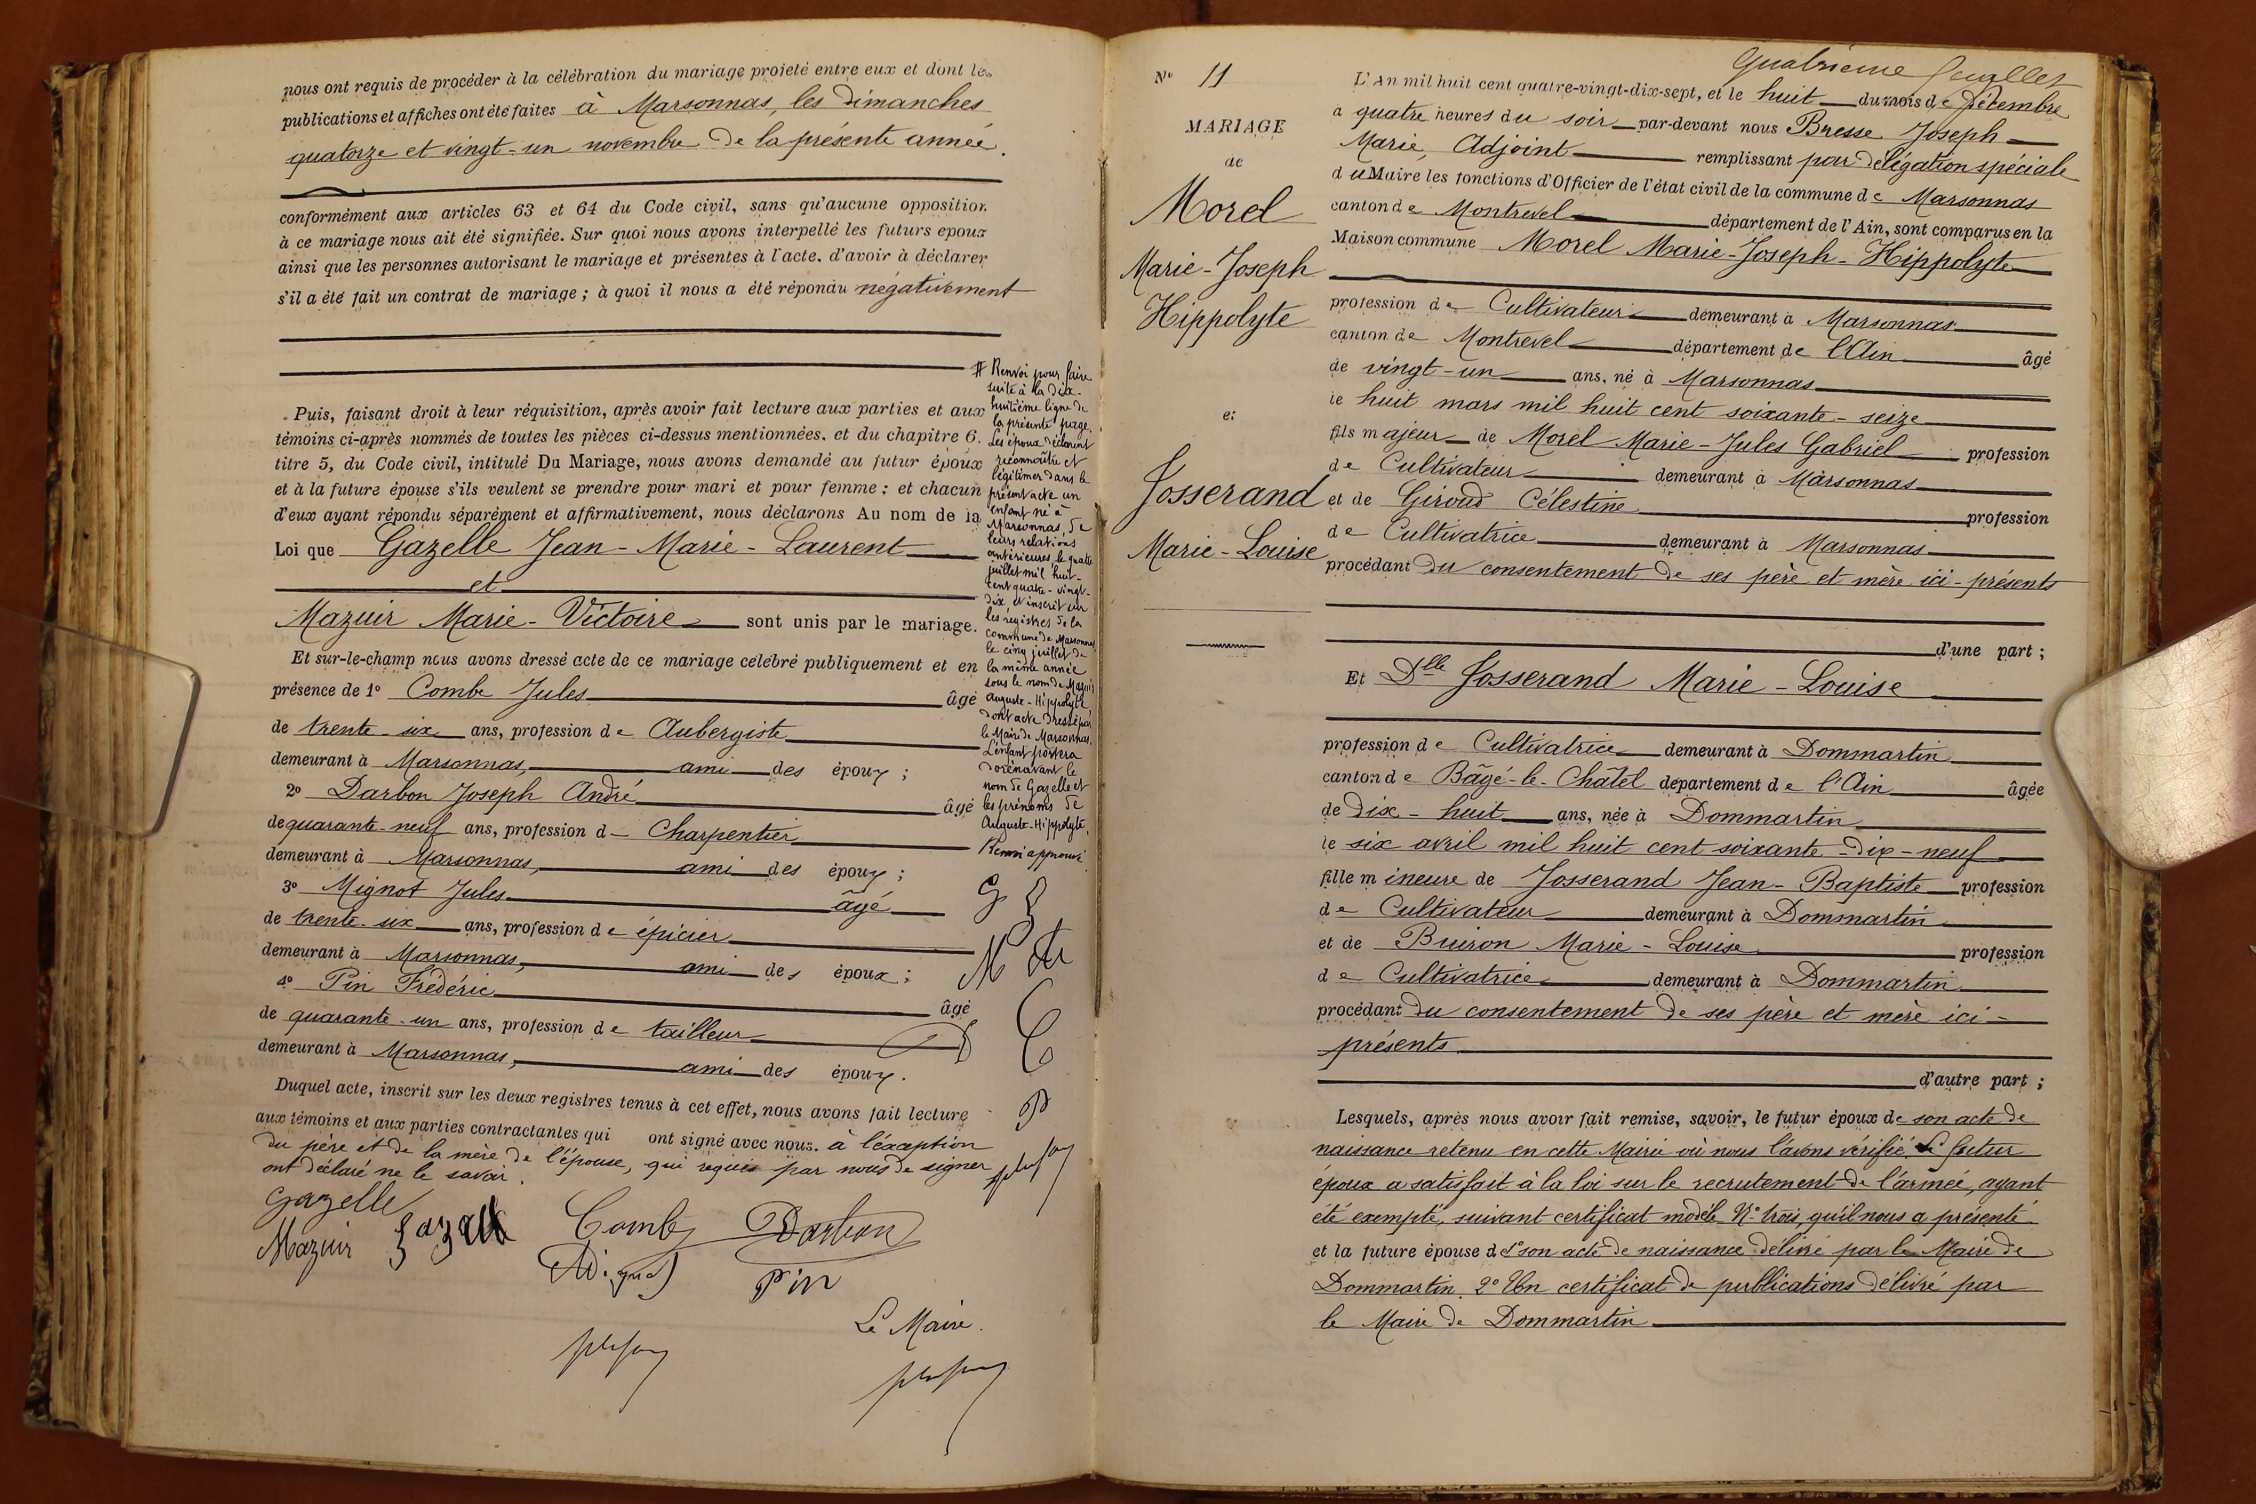 nous ont requis de procéder à la célébration du mariage projeté entre eux et dont les
publications et affiches ont été faites à Marsonnas, les dimanches
quatorze et vingt-un novembre de la présente année.
conformément aux articles 63 et 64 du Code civil, sans qu'aucune opposition
à ce mariage nous ait été signifiée. Sur quoi nous avons interpellé les futurs epoux
ainsi que les personnes autorisant le mariage et présentes à l'acte. d'avoir à déclarer
s'il a été fait un contrat de mariage ; à quoi il nous a été répondu négativement
Puis, faisant droit à leur réquisition, après avoir fait lecture aux parties et aux
témoins ci-après nommés de toutes les pièces ci-dessus mentionnées. et du chapitre 6.
titre 5, du Code civil, intitulé Du Mariage, nous avons demandé au futur époux
et à la future épouse s'ils veulent se prendre pour mari et pour femme : et chacun
d'eux ayant répondu séparément et affirmativement, nous déclarons Au nom de la
Loi que Gazelle Jean-Marie-Laurent
et
Mazuir Marie-Victoire sont unis par le mariage.
Et sur-le-champ nous avons dressé acte de ce mariage célébré publiquement et en
présence de 1° Combe Jules âgé
de trente-six ans, profession de Aubergiste
demeurant à Marsonnas, ami des époux ;
2° Darbon Joseph André âgé
de quarante-neuf ans, profession d Charpentier
demeurant à Marsonnas, ami des époux ;
3° Mignot Jules âgé
de trente-six ans, profession de épicier
demeurant à Marsonnas, ami des époux ;
4° Pin Frédéric âgé
de quarante-un ans, profession de tailleur
demeurant à Marsonnas, ami des époux.
Duquel acte, inscrit sur les deux registres tenus à cet effet, nous avons fait lecture
aux témoins et aux parties contractantes qui ont signé avec nous. à l'éxception
du père et de la mère de l'épouse, qui requis par nous de signer
ont déclaré ne le savoir.
Gazelle
Mazuir Gazelle Combe Darbon
Mignot Pin
Le Maire.
# Renvoi pour faire
suite à la dix-
huitième ligne de
la présente page.
Les époux déclarent
reconnoître et
légitimer dans le
présent acte un
enfant né à
Marsonnas, de
leurs relations
antérieures, le quatre
juillet mil huit-
cent quatre-vingt-
dix, et inscrit sur
les registres de la
commune de Marsonnas
le cinq juillet de
la même année
sous le nom de Mazuir
Auguste-Hippolyte
dont acte dressé par
le Maire de Marsonnas.
L'enfant portera
dorénavant le
nom de Gazelle et
les prénoms de
Auguste-Hippolyte.
Renvoi approuvé.
Quatrième feuillet
N° 11
MARIAGE
de
Morel
Marie-Joseph
Hippolyte
et
Josserand
Marie-Louise
L'An mil huit cent quatre-vingt-dix-sept, et le huit du mois de Décembre
à quatre heures du soir par-devant nous Bresse Joseph
Marie, Adjoint remplissant par délégation spéciale
du Maire les fonctions d'Officier de l'état civil de la commune de Marsonnas
canton de Montrevel département de l'Ain, sont comparus en la
Maison commune Morel Marie-Joseph-Hippolyte
profession de Cultivateur demeurant à Marsonnas
canton de Montrevel département de l'Ain âgé
de vingt-un ans, né à Marsonnas
le huit mars mil huit cent soixante-seize
fils majeur de Morel Marie-Jules Gabriel profession
de Cultivateur demeurant à Marsonnas
et de Giroud Célestine profession
de Cultivatrice demeurant à Marsonnas
procédant du consentement de ses père et mère ici-présents
d'une part ;
Et Dlle Josserand Marie-Louise
profession de Cultivatrice demeurant à Dommartin
canton de Bâgé-le-Châtel département de l'Ain âgée
de dix-huit ans, née à Dommartin
le six avril mil huit cent soixante-dix-neuf
fille mineure de Josserand Jean-Baptiste profession
de Cultivateur demeurant à Dommartin
et de Buiron Marie-Louise profession
de Cultivatrice demeurant à Dommartin
procédant du consentement de ses père et mère ici-
présents
d'autre part ;
Lesquels, après nous avoir fait remise, savoir, le futur époux de son acte de
naissance retenu en cette Mairie où nous l'avons vérifié, Le futur
époux a satisfait à la loi sur le recrutement de l'armée, ayant
été exempté, suivant certificat modèle N° trois, qu'il nous a présenté
et la future épouse de 1° son acte de naissance délivré par le Maire de
Dommartin. 2° Un certificat de publications délivré par
le Maire de Dommartin